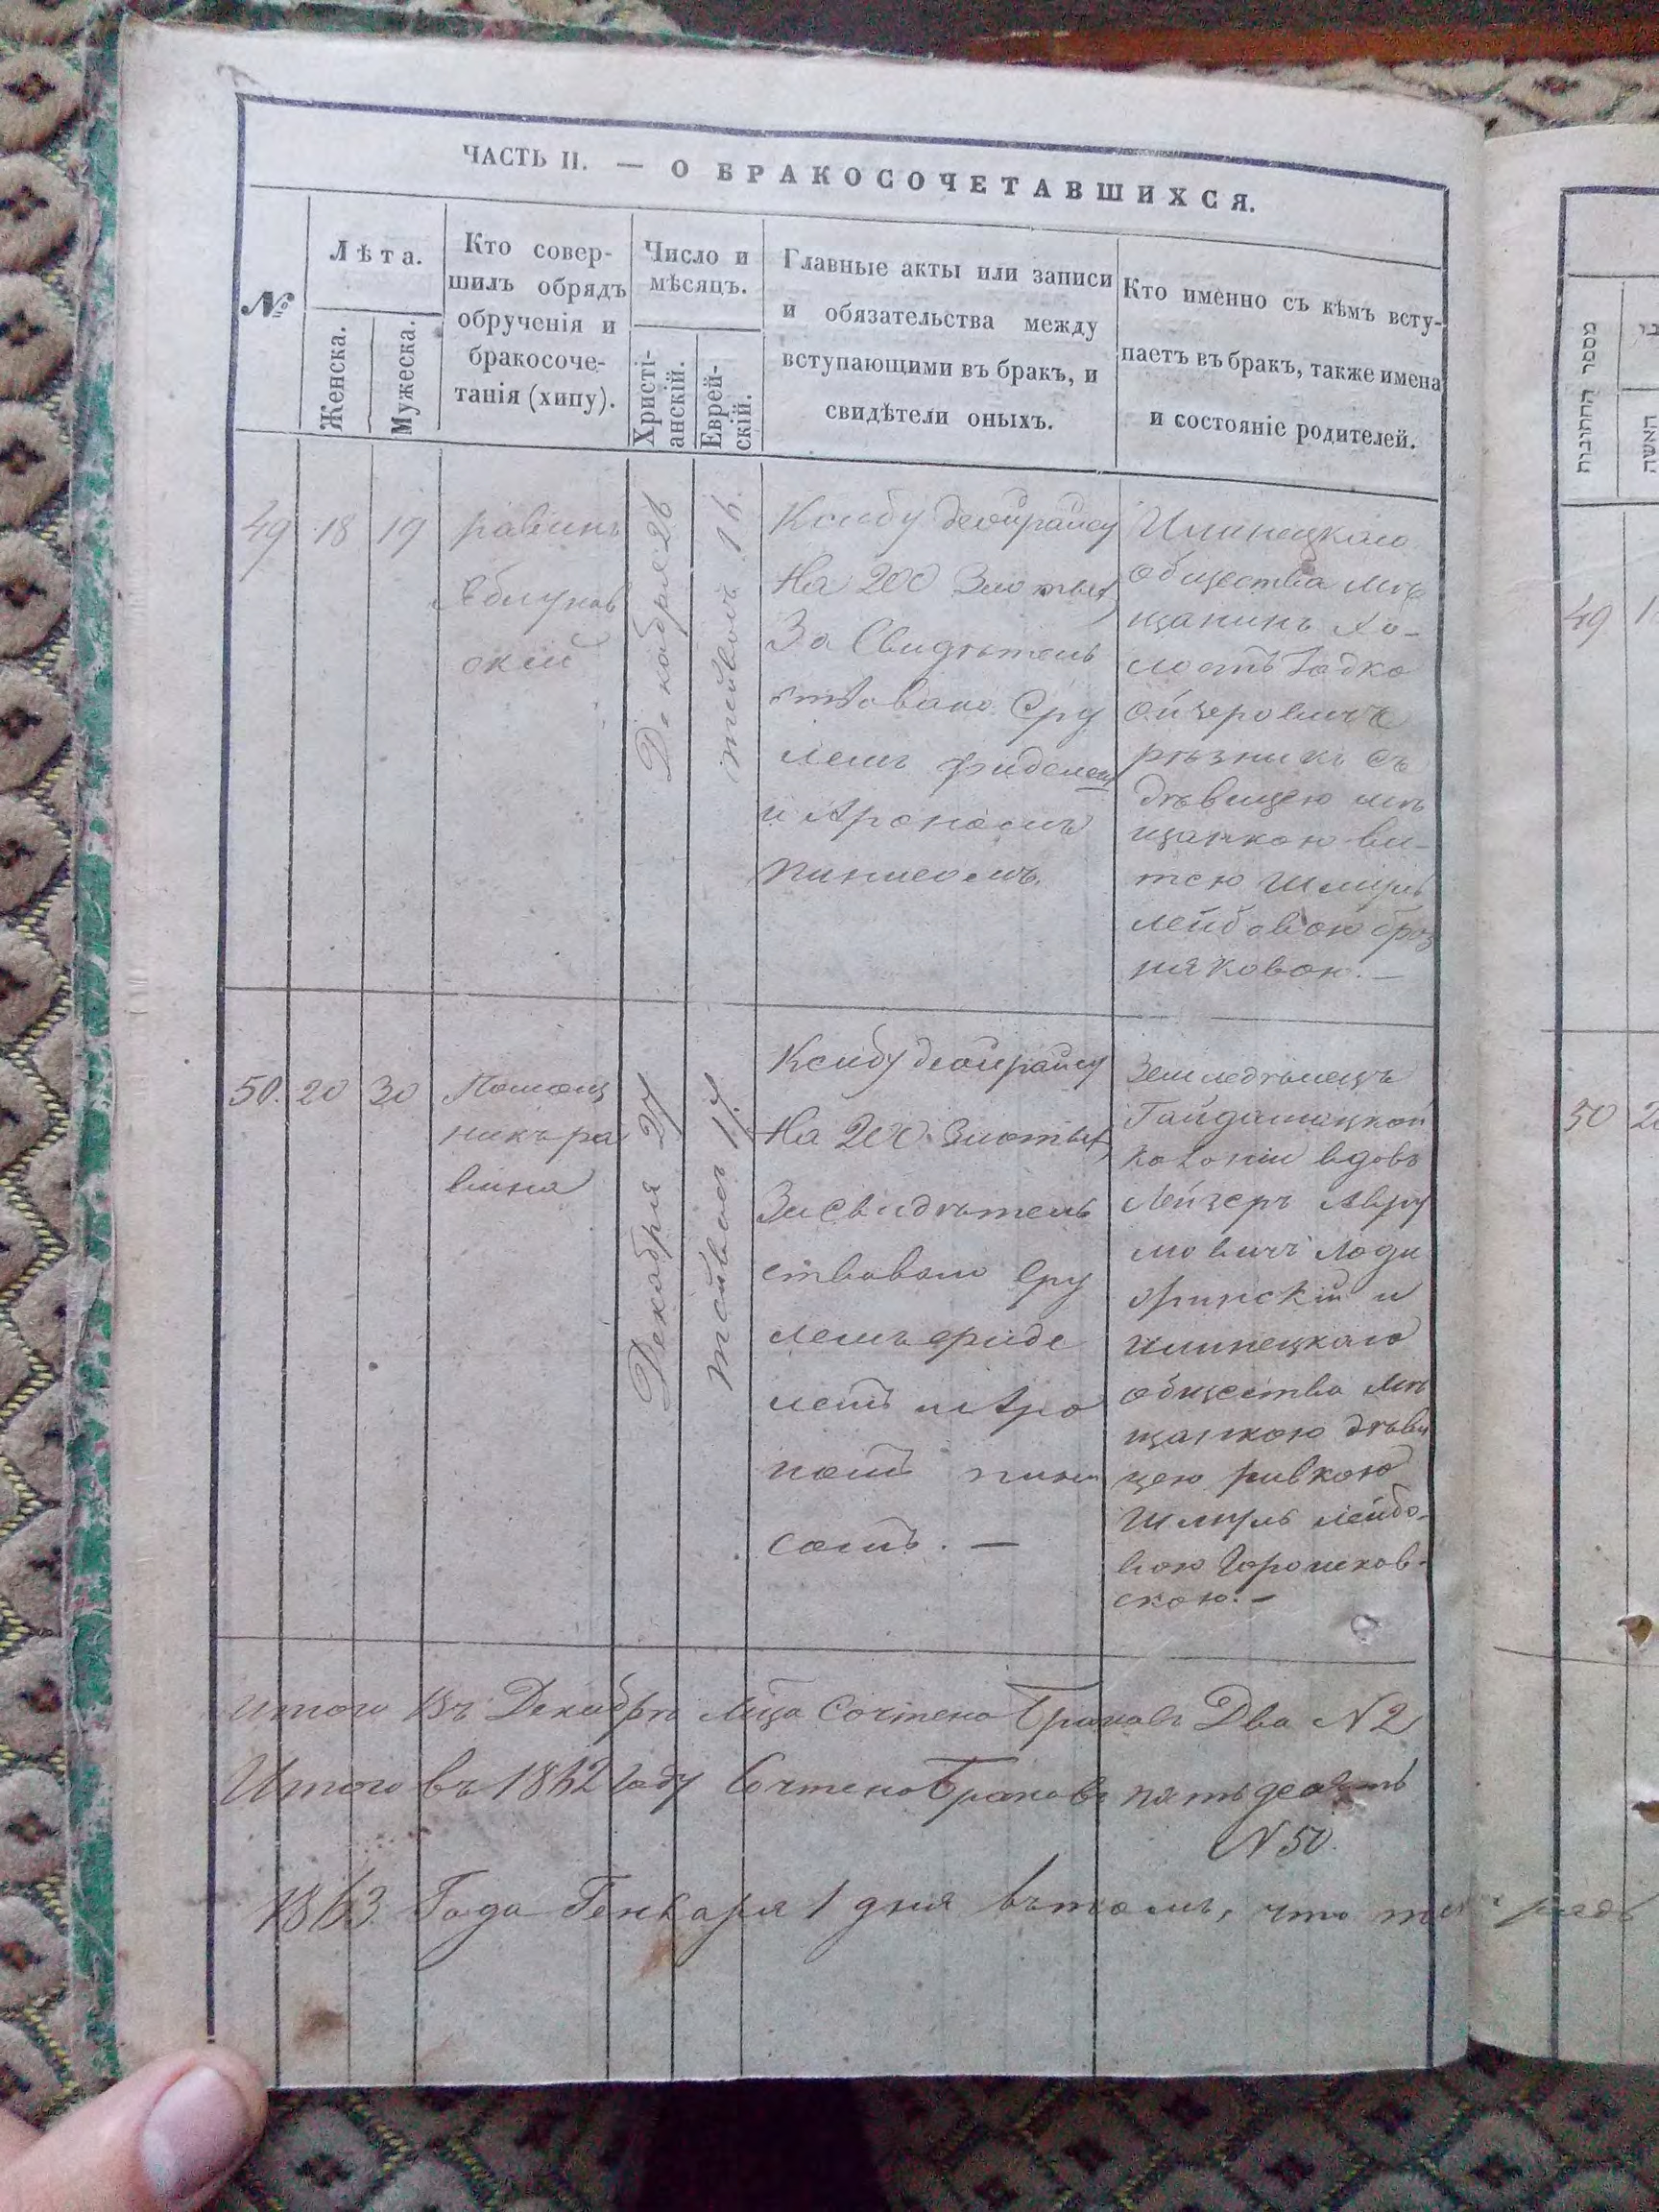 ЧАСТЬ II. — О БРАКОСОЧЕТАВШИХСЯ.
№
Лѣта.
Женска.
Мужеска.
Кто совер-
шилъ обрядъ
обрученія и
бракосоче-
танія (хипу).
Число и
мѣсяцъ.
Христі-
анскій.
Еврей-
скій.
Главные акты или записи
и обязательства между
вступающими въ бракъ, и
свидѣтели оныхъ.
Кто именно съ кѣмъ всту-
паетъ въ бракъ, также имена
и состояніе родителей.
מספר החתונות
האשה
49
18
19
равинъ
Яблунов
скій
Декабря 26
тейвосъ 16.
Ксибу деойрайсу
На 200 Злотых
За Свидѣтель
ствовано Сру
лемъ фиделем
и Арономъ
пинисомъ.
Илинецкаго
общества мѣ
щанинъ хо-
лостъ
Ойзеровичъ
рѣзникъ съ
дѣвицею мѣ
щанкою ви-
тею Шмуль
лейбовою броз
няковою. —
49
50.
20
30
Помощ
никъ ра
вина
Декабря 27
тейвосъ 17.
Ксибу деойрайсу
На 200 Злотых
Засвидѣтель
ствовано Сру
лемъ фиде
лемъ и Аро
номъ пини
сомъ. —
Земледѣлецъ
Гайдамацкой
колоніи вдовъ
Лейзеръ Авру
мовичъ
и
Илинецкаго
общества мѣ
щанкою дѣви
цею ривкою
Шмуль лейбо-
вою
скою. —
50
Итого Въ Декабрѣ М-ца Сочтено Браковъ Два N 2
Итого въ 1862 году Сочтено Браковъ пятьдесятъ
N 50.
1863 Года Генваря 1 дня въ томъ, что